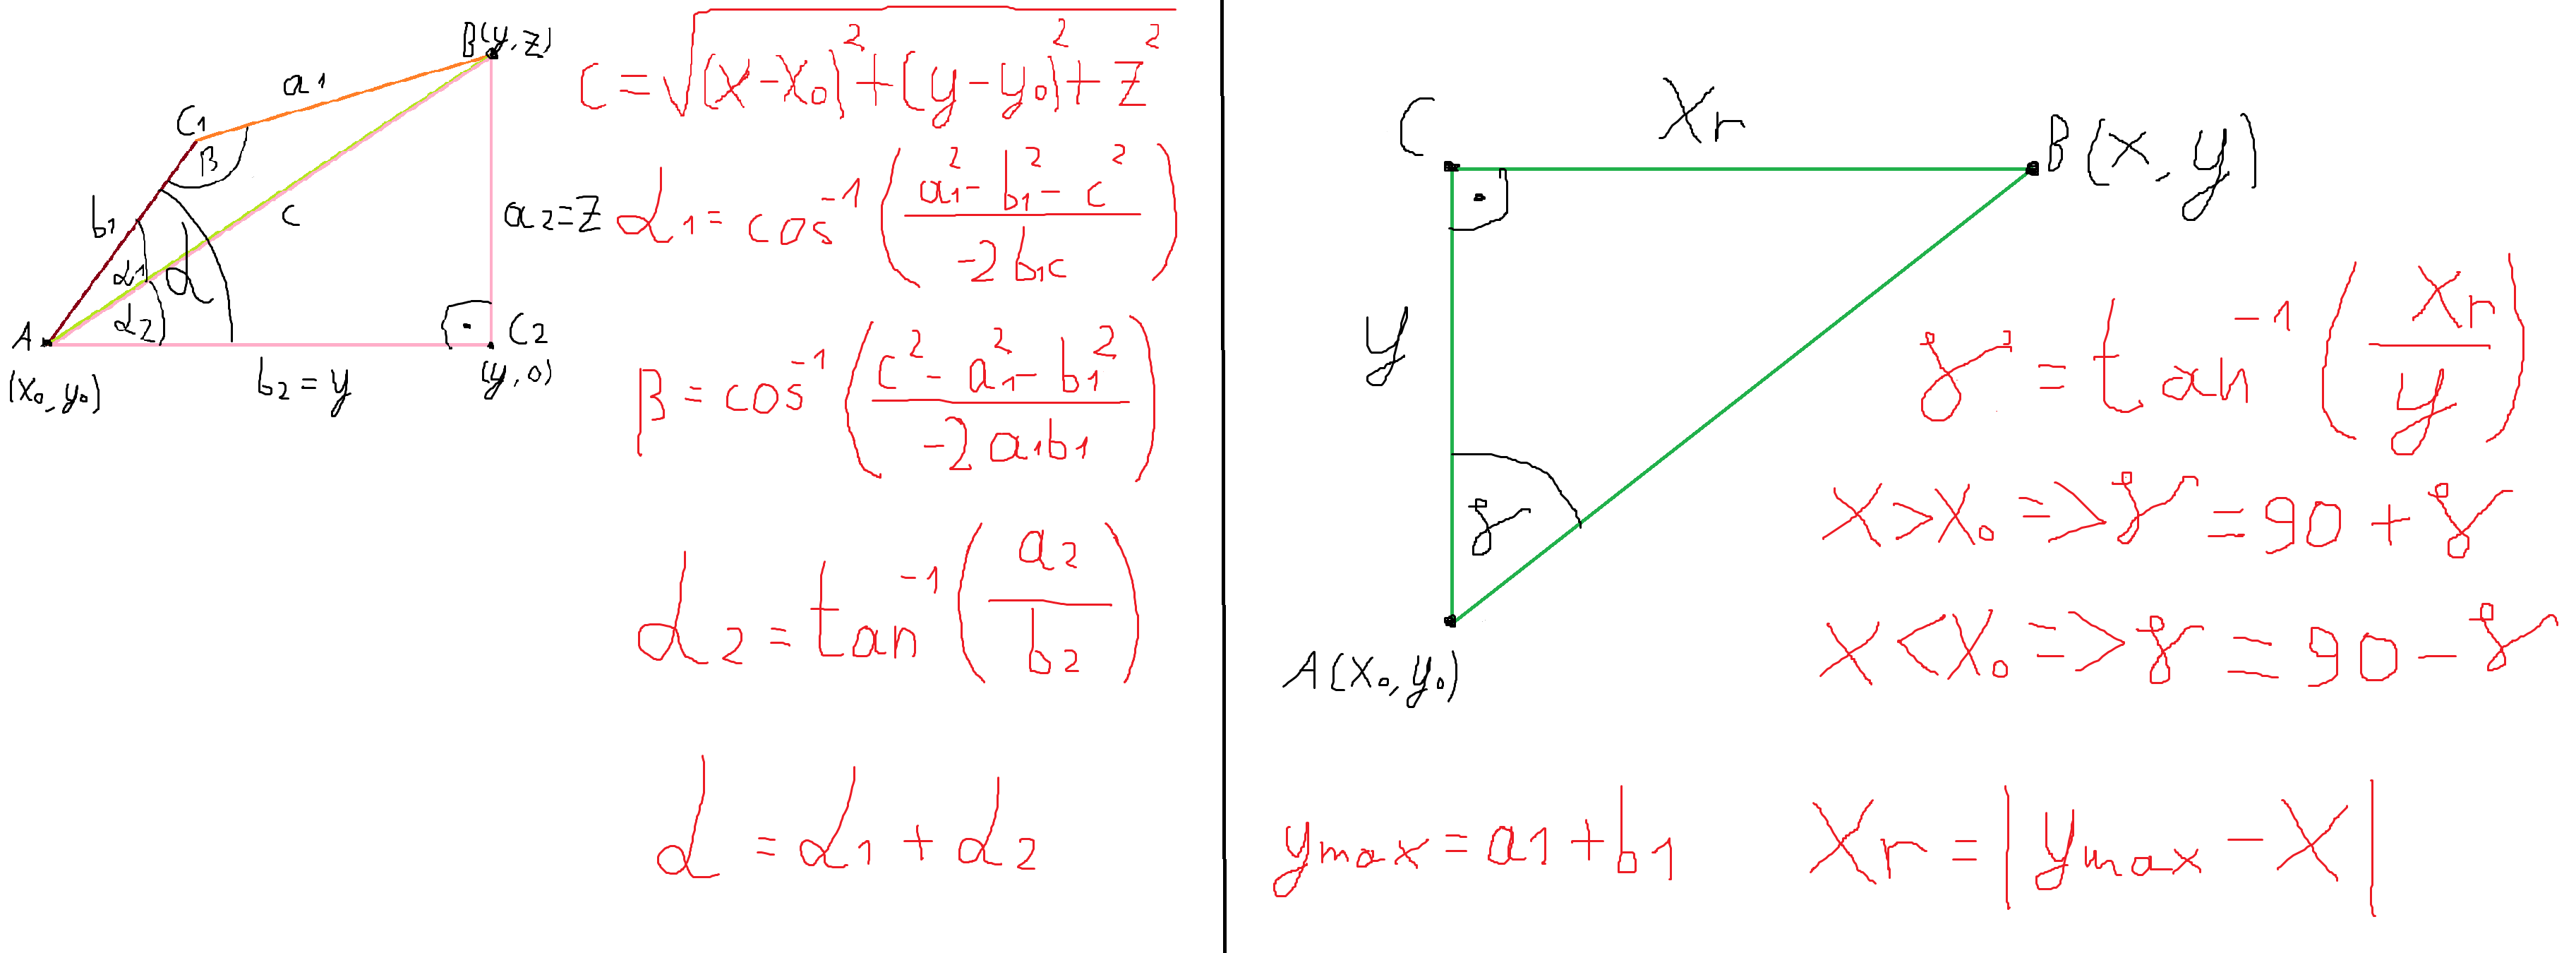 B(y,z)
a1
C1
β
b1
c
a2=z
α1
α
α2
A
C2
(x₀,y₀)
b2=y
(y,0)
c=√((x-x₀)²+(y-y₀)²+z²)
α1=cos⁻¹((a1²-b1²-c²)/(-2b1c))
β=cos⁻¹((c²-a1²-b1²)/(-2a1b1))
α2=tan⁻¹(a2/b2)
α=α1+α2
C
Xr
B(x,y)
y
γ
A(x₀,y₀)
γ=tan⁻¹(Xr/y)
x>x₀=>γ=90+γ
x<x₀=>γ=90-γ
ymax=a1+b1
Xr=|ymax-X|